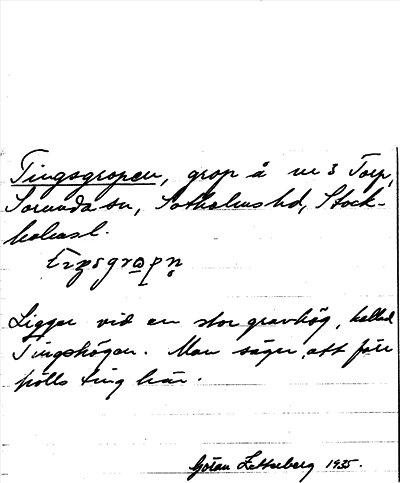 Tingsgropen, grop å nr 3 Torp,
Sorunda sn, Sotholms hd, Stock-
holms l.
Ligger vid en stor gravhög, kallad
Tingshögen. Man säger, att förr
hölls ting här.
Göran Zetterberg 1935.